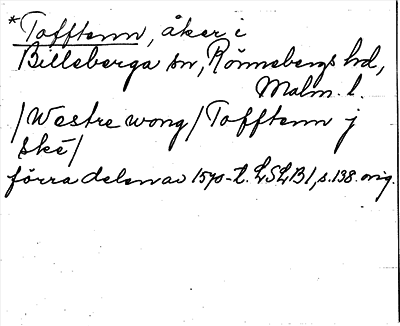 *Tofftenn, åker i
Billeberga sn, Rönnebergs hd,
Malm. l.
/Westre wong/ Tofftenn j
ske/
förra delen av 1590-t. LSLB 1, s. 138. orig.